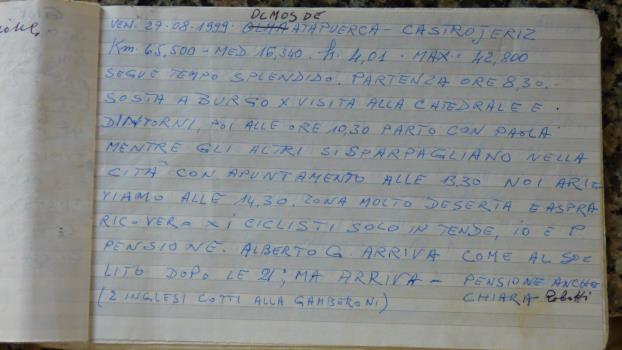 VEN. 27-08-1999 OLMOS DE ATAPUERCA - CASTROJERIZ
Km. 65,500 - MED 16,340. h. 4,01 - MAX = 42,800
SEGUE TEMPO SPLENDIDO. PARTENZA ORE 8,30.
SOSTA A BURGO X VISITA ALLA CATEDRALE E
DINTORNI, POI ALLE ORE 10,30 PARTO CON PAOLA
MENTRE GLI ALTRI SI SPARPAGLIANO NELLA
CITTÀ CON APUNTAMENTO ALLE 13,30 NOI ARI
VIAMO ALLE 14,30. ZONA MOLTO DESERTA E ASPRA
RICOVERO X I CICLISTI SOLO IN TENDE, IO E P
PENSIONE. ALBERTO G. ARRIVA COME AL SO
LITO DOPO LE 21; MA ARRIVA - PENSIONE ANCHE
(2 INGLESI COTTI ALLA GAMBERONI) CHIARA